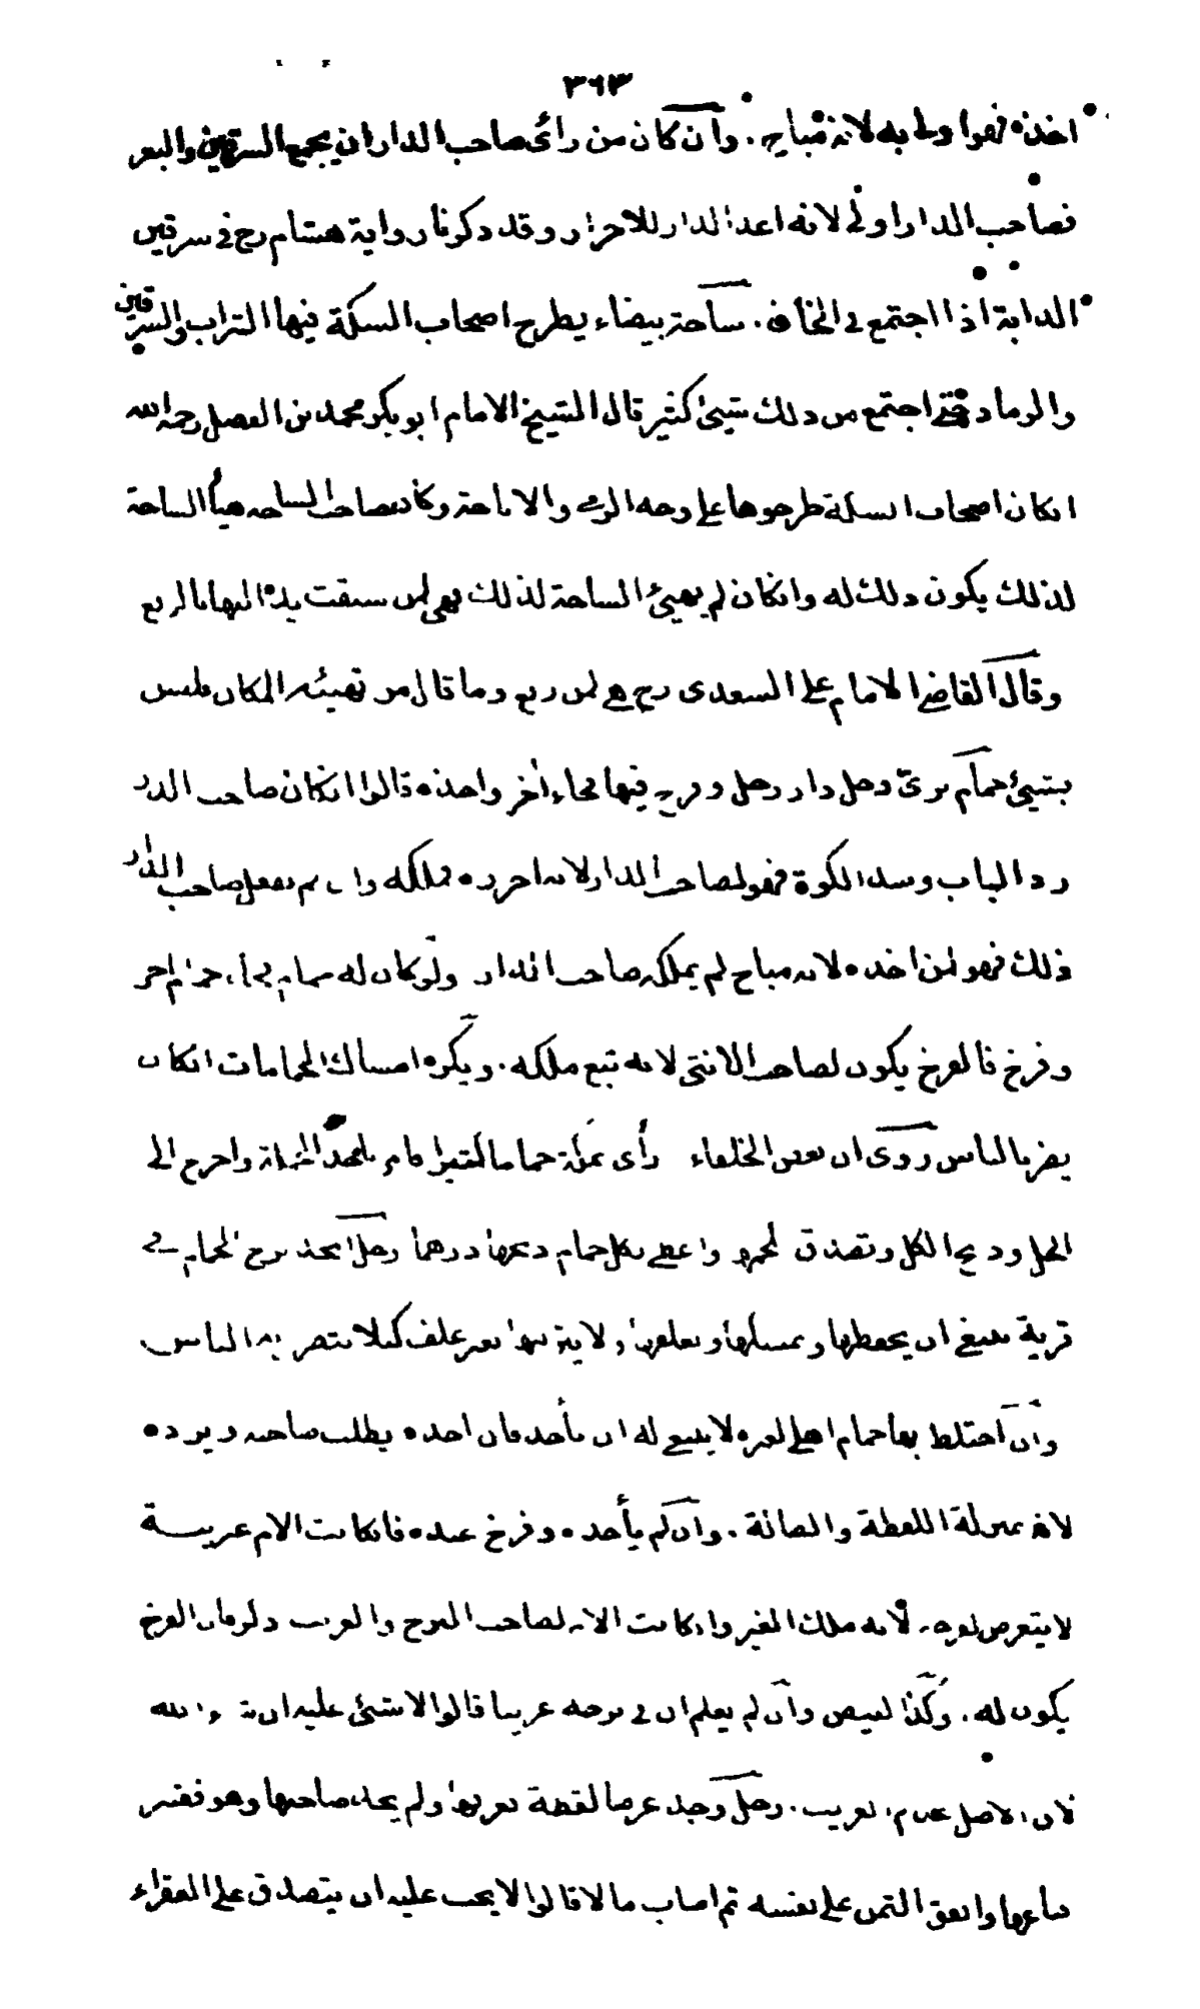 ٣٦٣
اخذه فهو اولى به لانه مباح . وان كان من رأى صاحب الدار ان يجمع السرقين والبعر
فصاحب الدار اولى لانه اعد الدار للاحراز وقد ذكرنا رواية هشام رح فى سرقين
الدابة اذا اجتمع فى الخان . ساحة بيضاء يطرح اصحاب السكة فيها التراب والسرقين
والرماد حتى اجتمع من ذلك شيئ كثير قال الشيخ الامام ابو بكر محمد بن الفضل رحمه الله
انكان اصحاب السكة طرحوها على وجه الرمى والاباحة وكان صاحب الساحه هيأ الساحة
لذلك يكون ذلك له وانكان لم يهيئ الساحة لذلك فهى لمن سبقت يده اليها بالرفع
وقال القاضى الامام على السعدى رح هى لمن رفع وما قال من تهيئة المكان فليس
بشيئ حمام برى دخل دار رجل وفرخ فيها فجاء اخر واخذه قالوا انكان صاحب الدار
رد الباب وسد الكوة فهو لصاحب الدار لانه احرزه فملكه وان لم يفعل صاحب الدار
ذلك فهو لمن اخذه لانه مباح لم يملكه صاحب الدار ولو كان له حمام فجاء حمام اخر
وفرخ فالفرخ يكون لصاحب الانثى لانه تبع ملكه . ويكره امساك الحمامات انكان
يضر بالناس روى ان بعض الخلفاء رأى بمكة حماما كثيرا فامر باتخاذ واخرج الى
الحل وذبح الكل وتصدق لحمه واعطى بكل حمام ذبحها درهما رجل اتخذ برج الحمام فى
قرية ينبغى ان يحفظها ويمسكها ويعلفها ولا يتركها بغير علف كيلا يتضرر به الناس
وان اختلط بها حمام اهلى لغيره لا ينبغى له ان يأخذ فان اخذه يطلب صاحبه ويرده
لانه بمنزلة اللقطة والضالة . وان لم يأخذه وفرخ عنده فانكانت الام غريبة
لا يتعرض لفرخه لانه ملك الغير وانكانت الام لصاحب البرج والغريب ذكر فان الفرخ
يكون له . وكذا البيض وان لم يعلم ان فى برجه غريبا قالوا لا شيئ عليه ان شاء الله
لان الاصل عدم الغريب . رجل وجد عرضا لقطة فعرفها ولم يجد صاحبها وهو فقير
فباعها وانفق الثمن على نفسه ثم اصاب مالا قالوا لا يجب عليه ان يتصدق على الفقراء